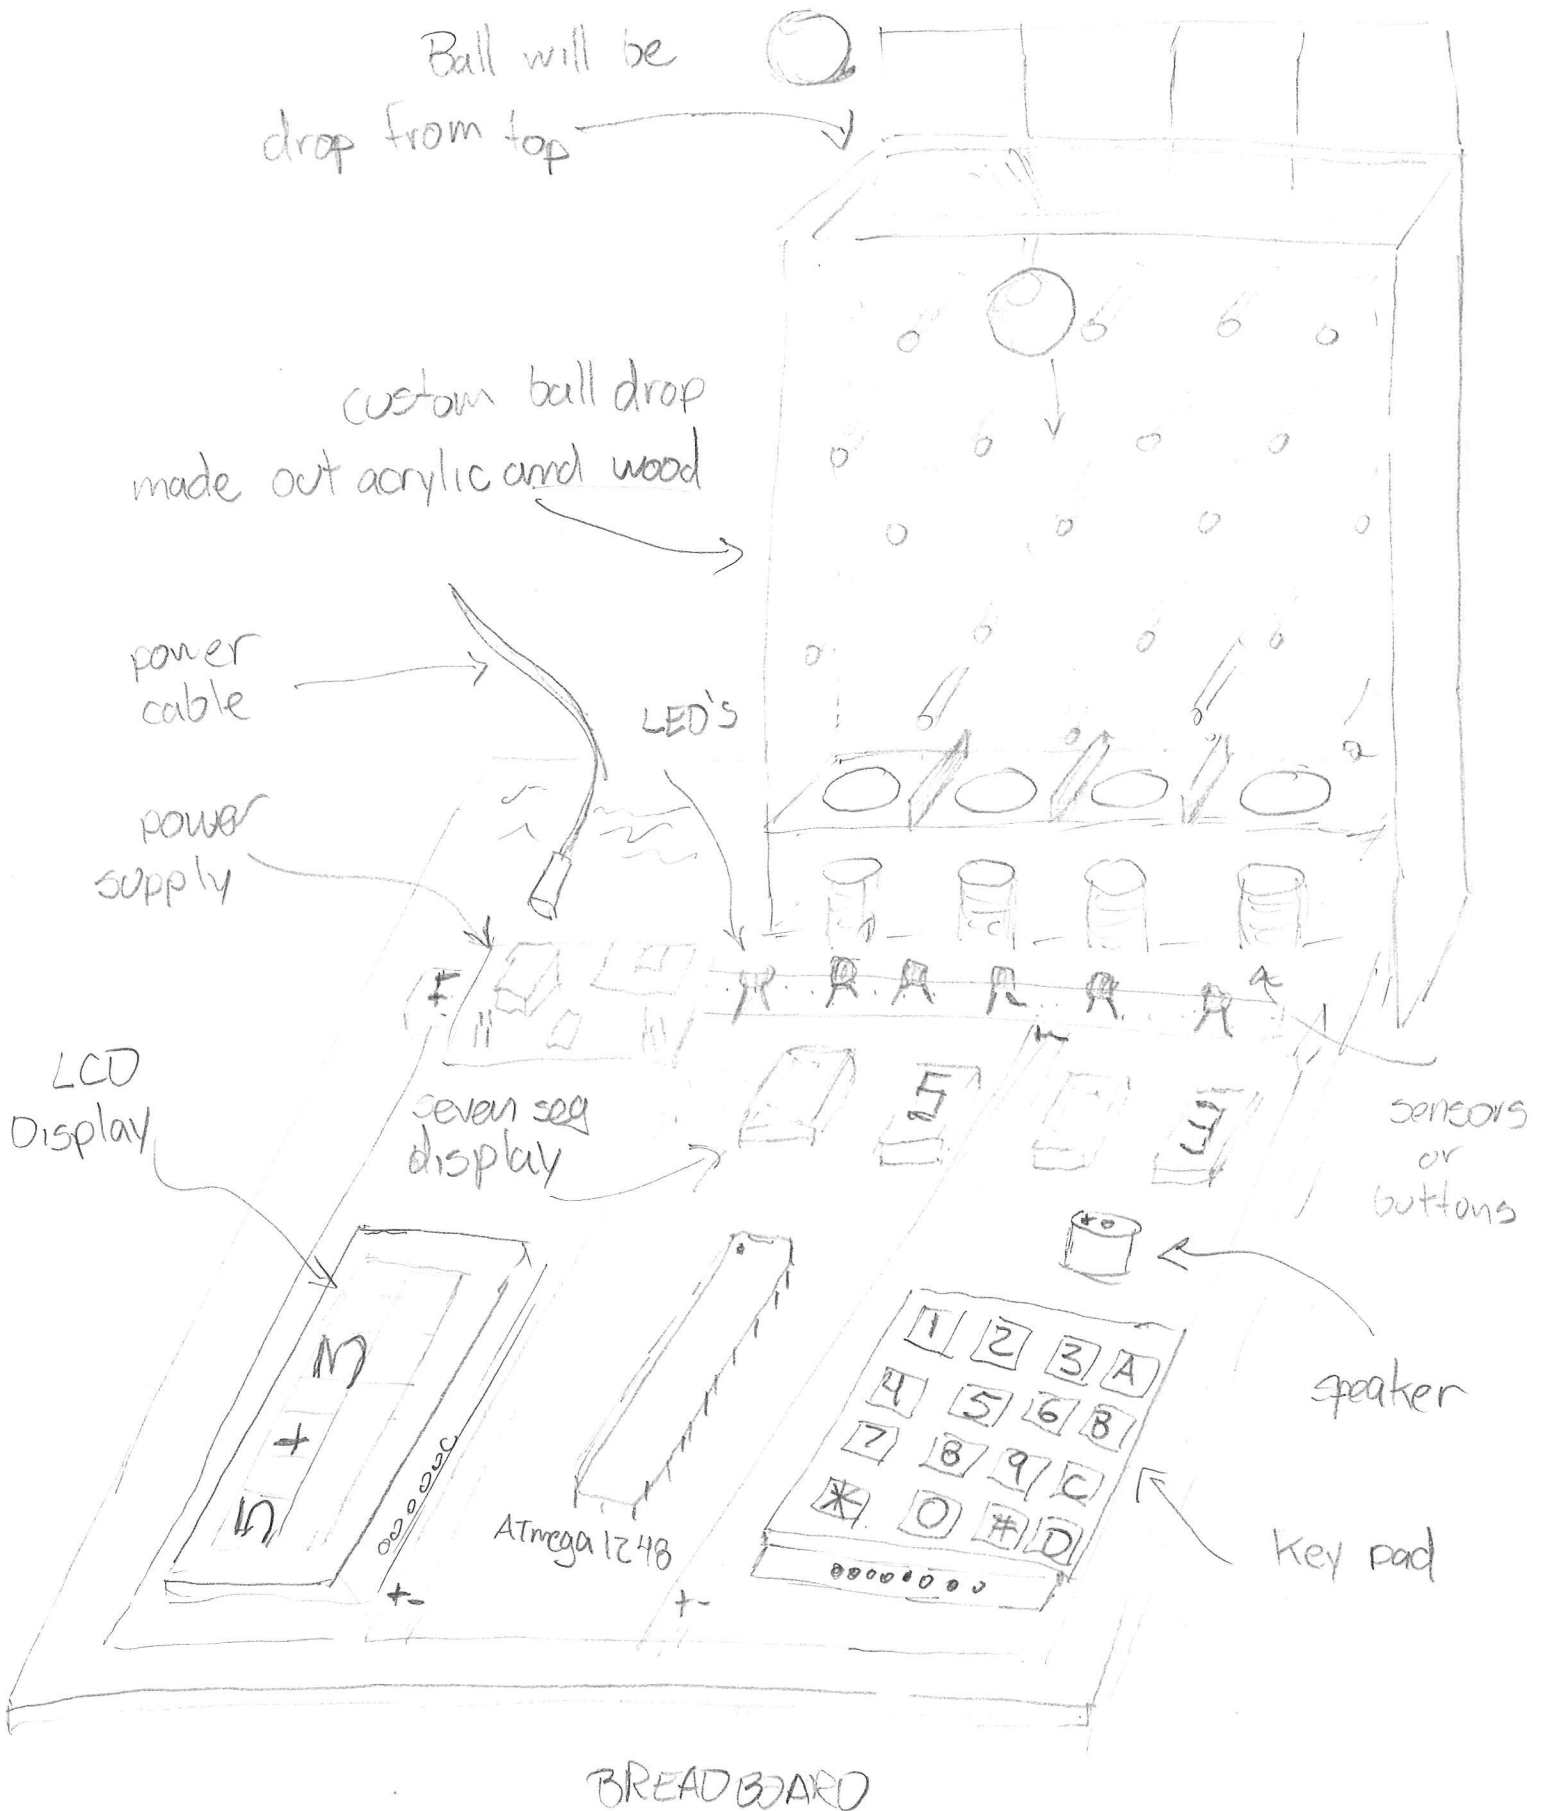 Ball will be
drop from top
custom ball drop
made out acrylic and wood
power
cable
LED's
power
supply
+ -
LCD
Display
seven seg
display
5
3
sensors
or
buttons
speaker
5 + 3
1 2 3 A
4 5 6 B
7 8 9 C
* 0 # D
ATmega1248
Key pad
+ -
+ -
BREADBOARD